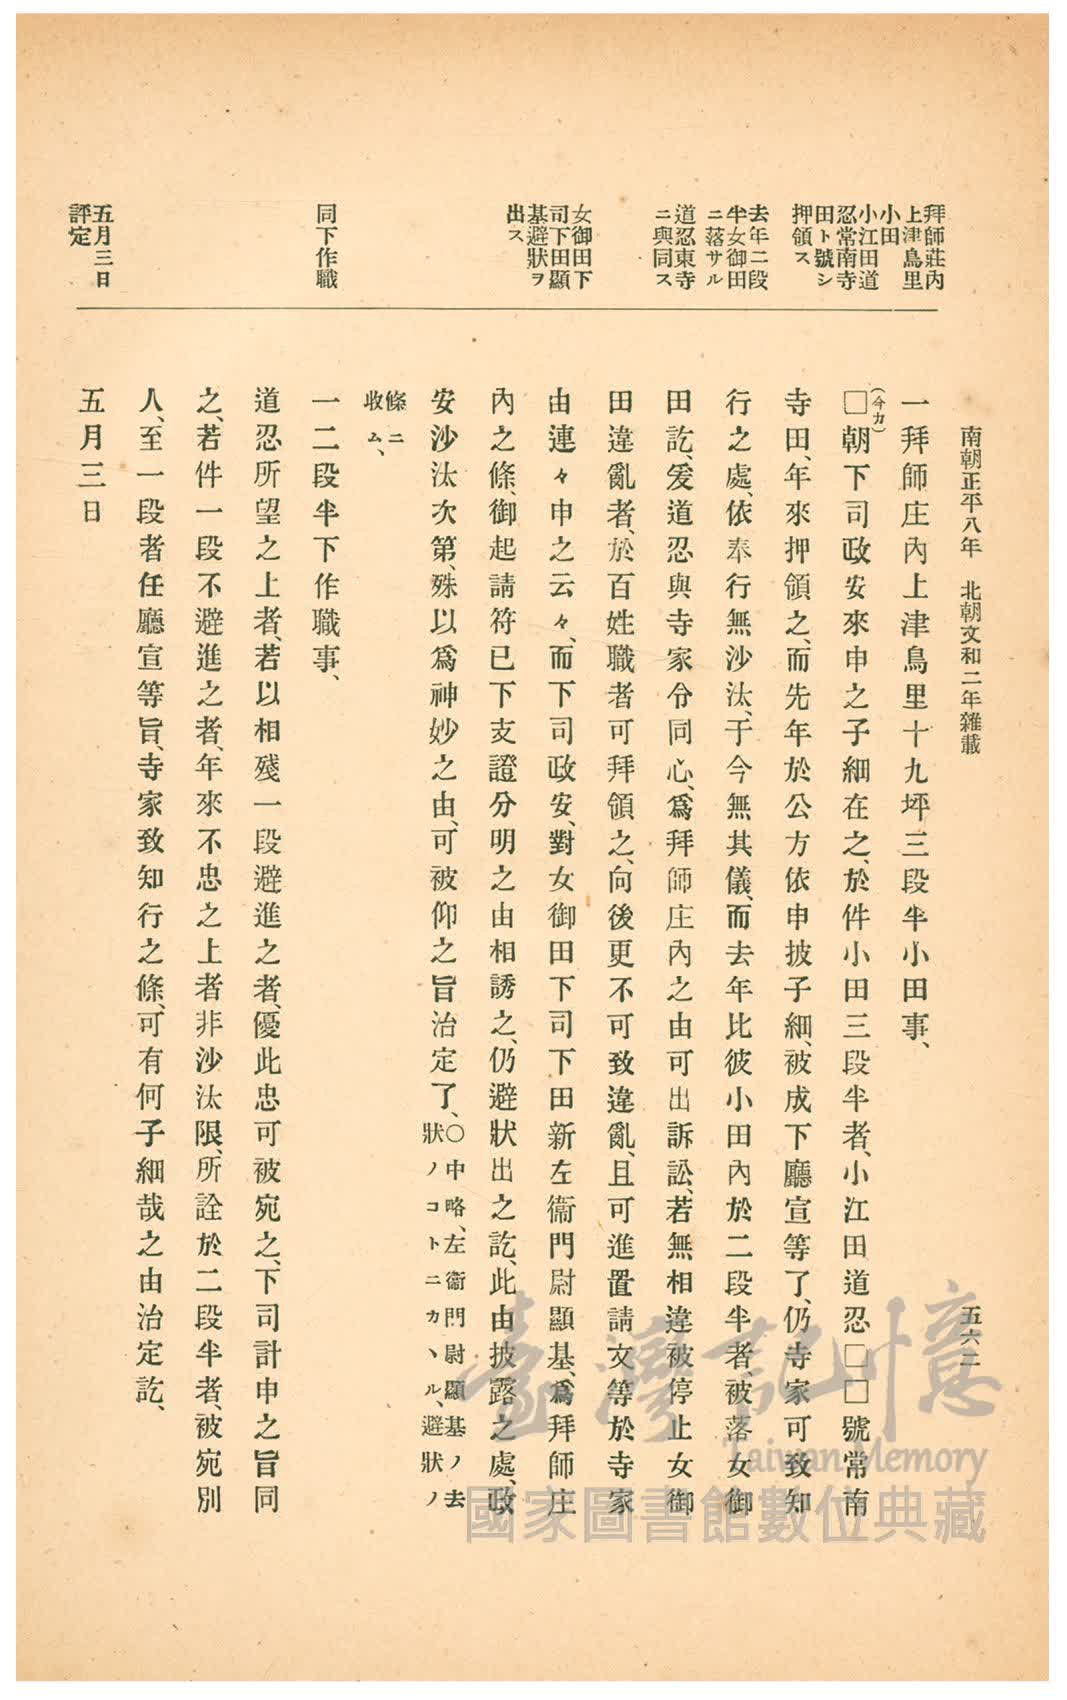 南朝正平八年　北朝文和二年雜載
五六二
拜師莊內
上津鳥里
小田
小江田道
忍常南寺
田ト號シ
押領ス
去年二段
半女御田
ニ落サル
道忍東寺
ニ與同ス
女御田下
司下田顯
基避狀ヲ
出ス
同下作職
五月三日
評定
一拜師庄內上津鳥里十九坪三段半小田事、
(今カ)
□朝下司政安來申之子細在之、於件小田三段半者、小江田道忍□□號常南
寺田、年來押領之、而先年於公方依申披子細、被成下廳宣等了、仍寺家可致知
行之處、依奉行無沙汰、于今無其儀、而去年比彼小田內於二段半者、被落女御
田訖、爰道忍與寺家令同心、爲拜師庄內之由可出訴訟、若無相違被停止女御
田違亂者、於百姓職者可拜領之、向後更不可致違亂、且可進置請文等於寺家
由連々申之云々、而下司政安、對女御田下司下田新左衞門尉顯基、爲拜師庄
內之條、御起請符已下支證分明之由相誘之、仍避狀出之訖、此由披露之處、政
安沙汰次第、殊以爲神妙之由、可被仰之旨治定了、
○中略、左衞門尉顯基ノ去
狀ノコトニカヽル、避狀ノ
條ニ
收ム、
一二段半下作職事、
道忍所望之上者、若以相殘一段避進之者、優此忠可被宛之、下司計申之旨同
之、若件一段不避進之者、年來不忠之上者非沙汰限、所詮於二段半者、被宛別
人、至一段者任廳宣等旨、寺家致知行之條、可有何子細哉之由治定訖、
五月三日
臺灣記憶
Taiwan Memory
國家圖書館數位典藏